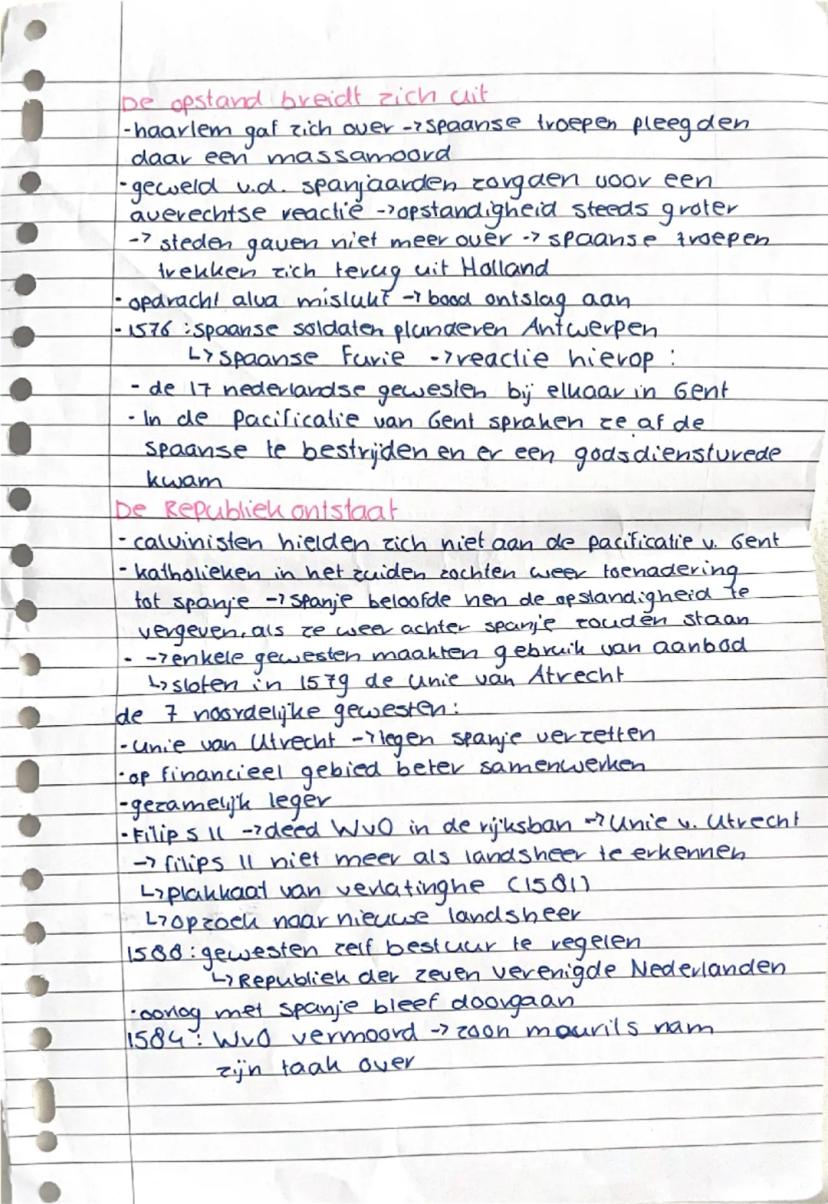 De opstand breidt zich uit
- haarlem gaf zich over -> spaanse troepen pleegden
daar een massamoord
- geweld v.d. spanjaarden zorgden voor een
averechtse reactie -> opstandigheid steeds groter
-> steden gaven niet meer over -> spaanse troepen
trekken zich terug uit Holland
- opdracht alva mislukt -> bood ontslag aan
- 1576 : spaanse soldaten plunderen Antwerpen
↳ spaanse Furie -> reactie hierop :
- de 17 nederlandse gewesten bij elkaar in Gent
- In de Pacificatie van Gent spraken ze af de
spaanse te bestrijden en er een godsdienstvrede
kwam
De Republiek ontstaat
- calvinisten hielden zich niet aan de pacificatie v. Gent
- katholieken in het zuiden zochten weer toenadering
tot spanje -> spanje beloofde hen de opstandigheid te
vergeven, als ze weer achter spanje zouden staan
- -> enkele gewesten maakten gebruik van aanbod
↳ sloten in 1579 de unie van Atrecht
de 7 noordelijke gewesten :
- unie van Utrecht -> tegen spanje verzetten
- op financieel gebied beter samenwerken
- gezamelijk leger
- Filips II -> deed WvO in de rijksban -> Unie v. Utrecht
-> filips II niet meer als landsheer te erkennen
↳ plakkaat van verlatinghe (1581)
↳ opzoek naar nieuwe landsheer
1588 : gewesten zelf bestuur te regelen
↳ Republiek der zeven verenigde Nederlanden
- oorlog met spanje bleef doorgaan
1584 : WvO vermoord -> zoon maurits nam
zijn taak over